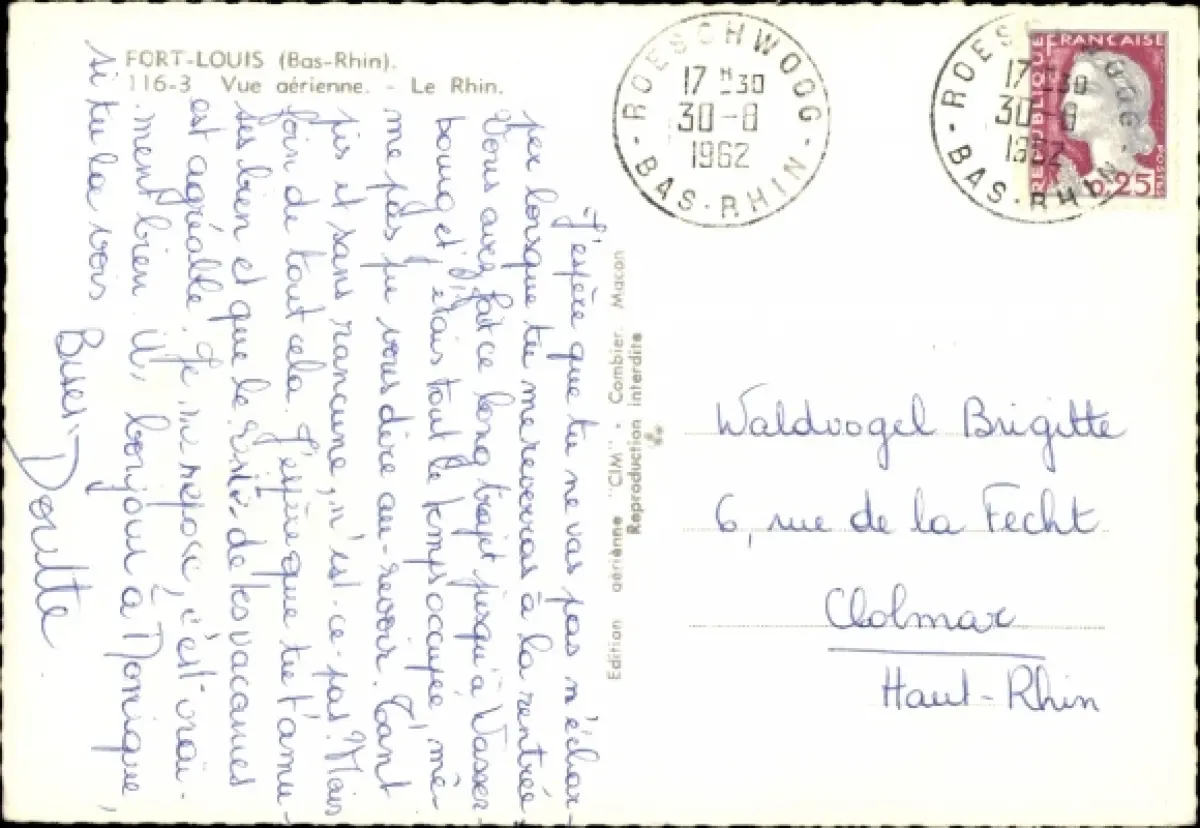 FORT-LOUIS (Bas-Rhin).
116-3 Vue aérienne. - Le Rhin.
J'espère que tu ne vas pas m'échar-
per lorsque tu me reverras à la rentrée
Vous avez fait ce long trajet jusqu'à Wasser
bourg et j'étais tout le temps occupée, mê-
me pas pu vous dire au-revoir. Tant
pis et sans rancune, n'est-ce-pas? Mais
foin de tout cela. J'espère que tu t'amu-
ses bien et que le de tes vacances
est agréable. Je me repose, c'est vrai-
ment bien ici, bonjour à Monique,
si tu la vois
Bises
Doutte
Edition aérienne "CIM" - Combier. Macon
Reproduction interdite
ROESCHWOOG
17 H 30
30-8
1962
- BAS-RHIN -
ROESCHWOOG
17 H 30
30-8
1962
- BAS-RHIN -
REPUBLIQUE FRANCAISE
0,25
POSTES
Waldvogel Brigitte
6, rue de la Fecht
Clolmar
Haut-Rhin